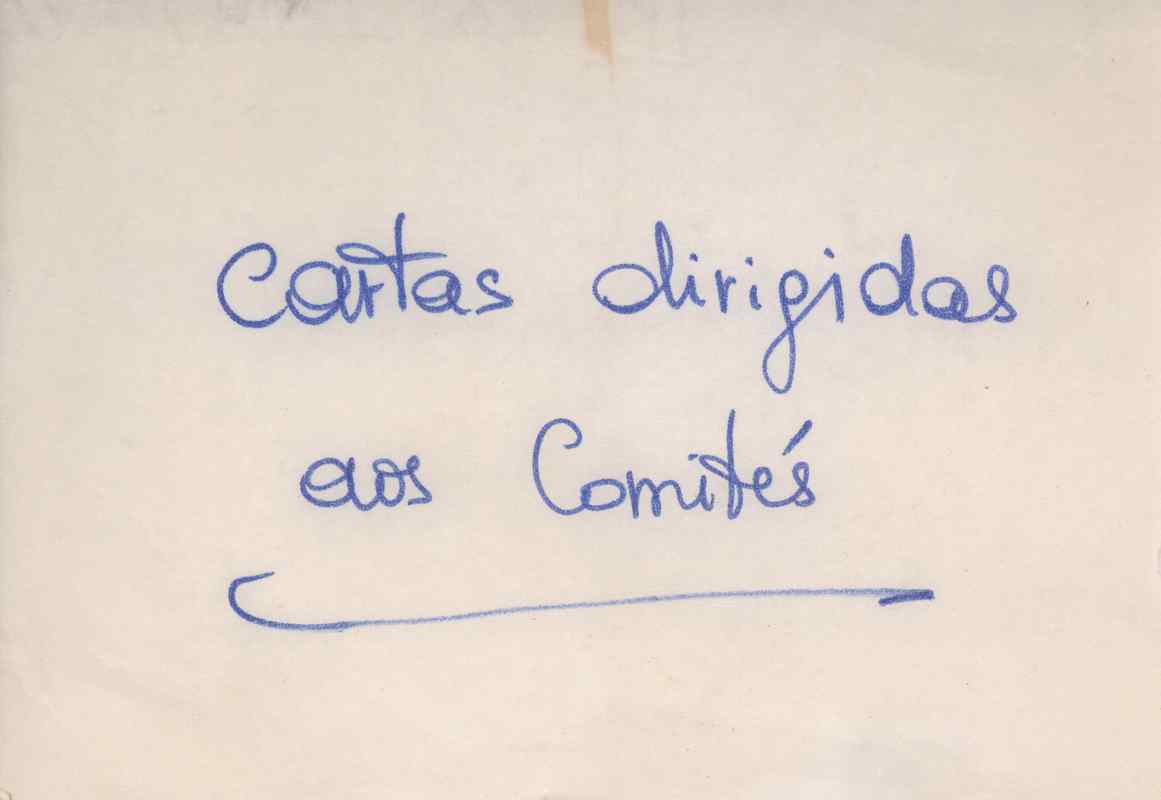 Cartas dirigidas
aos Comités